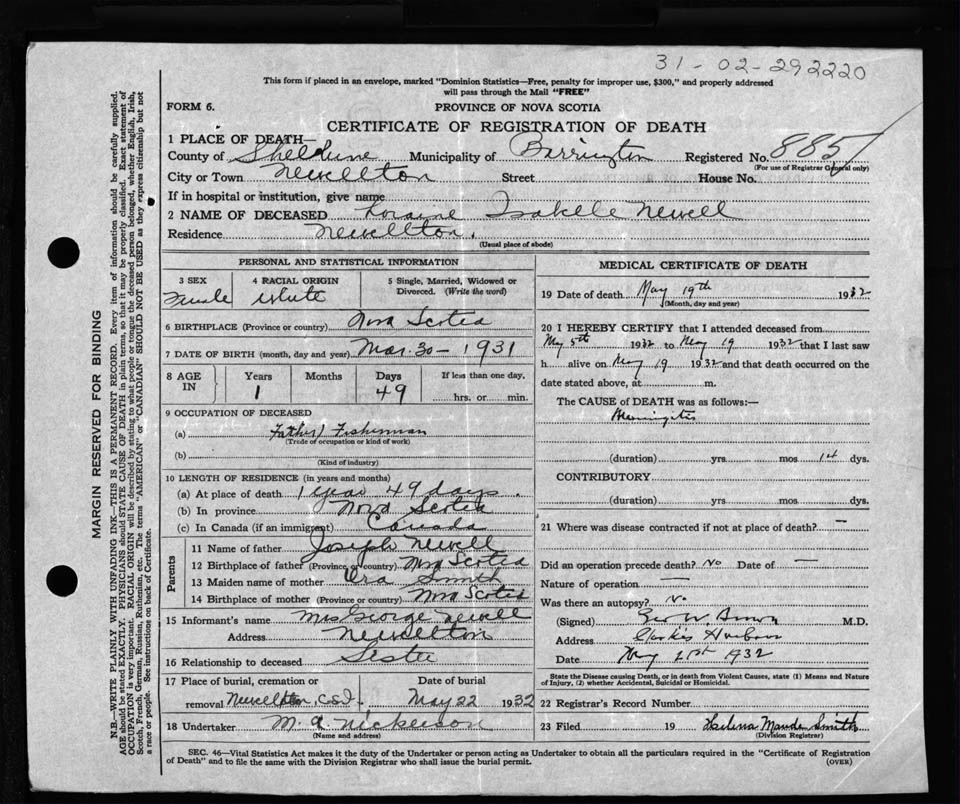 31-02-292220
This form if placed in an envelope, marked "Dominion Statistics—Free, penalty for improper use, $300," and properly addressed
will pass through the Mail "FREE"
FORM 6.
PROVINCE OF NOVA SCOTIA
CERTIFICATE OF REGISTRATION OF DEATH
1 PLACE OF DEATH—
County of Shelburne Municipality of Barrington Registered No. 885
(For use of Registrar General only)
City or Town Newellton Street House No.
If in hospital or institution, give name
2 NAME OF DECEASED Loraine Isabelle Newell
Residence Newellton.
(Usual place of abode)
PERSONAL AND STATISTICAL INFORMATION
3 SEX 4 RACIAL ORIGIN 5 Single, Married, Widowed or
Divorced. (Write the word)
Female White
6 BIRTHPLACE (Province or country) Nova Scotia
7 DATE OF BIRTH (month, day and year) Mar. 30 - 1931
8 AGE IN Years Months Days If less than one day,
1 49 hrs. or min.
9 OCCUPATION OF DECEASED
(a) Father) Fisherman
(Trade of occupation or kind of work)
(b)
(Kind of industry)
10 LENGTH OF RESIDENCE (in years and months)
(a) At place of death 1 year 49 days.
(b) In province Nova Scotia
(c) In Canada (if an immigrant) Canada
Parents
11 Name of father Joseph Newell
12 Birthplace of father (Province or country) Nova Scotia
13 Maiden name of mother Ora Smith
14 Birthplace of mother (Province or country) Nova Scotia
15 Informant's name Mrs George Newell
Address Newellton
16 Relationship to deceased Sister
17 Place of burial, cremation or Date of burial
removal Newellton C.S.I. May 22 1932
18 Undertaker M. A. Nickerson
(Name and address)
MEDICAL CERTIFICATE OF DEATH
19 Date of death May 19th 1932
(Month, day and year)
20 I HEREBY CERTIFY that I attended deceased from
May 5th 1932 to May 19 1932 that I last saw
h alive on May 19 1932 and that death occurred on the
date stated above, at m.
The CAUSE OF DEATH was as follows:—
Meningitis
(duration) yrs mos 14 dys.
CONTRIBUTORY
(duration) yrs. mos. dys.
21 Where was disease contracted if not at place of death? —
Did an operation precede death? No Date of —
Nature of operation —
Was there an autopsy? No
(Signed) Geo W. M.D.
Address Clarks Harbour
Date May 21st 1932
State the Disease causing Death, or in death from Violent Causes, state (1) Means and Nature
of Injury, (2) whether Accidental, Suicidal or Homicidal.
22 Registrar's Record Number
23 Filed 19 Maude Smith
(Division Registrar)
SEC. 46—Vital Statistics Act makes it the duty of the Undertaker or person acting as Undertaker to obtain all the particulars required in the "Certificate of Registration
of Death" and to file the same with the Division Registrar who shall issue the burial permit.
(OVER)
MARGIN RESERVED FOR BINDING
N.B.—WRITE PLAINLY WITH UNFADING INK—THIS IS A PERMANENT RECORD. Every item of information should be carefully supplied.
AGE should be stated EXACTLY. PHYSICIANS should STATE CAUSE OF DEATH in plain terms, so that it may be properly classified. Exact statement of
OCCUPATION is very important. RACIAL ORIGIN will be described by stating to what people or tongue the deceased person belonged, whether English, Irish,
Scotch, French, German, Russian, Ruthenian, etc. The terms "AMERICAN" or "CANADIAN" SHOULD NOT BE USED as they express citizenship but not
a race or people. See instructions on back of Certificate.